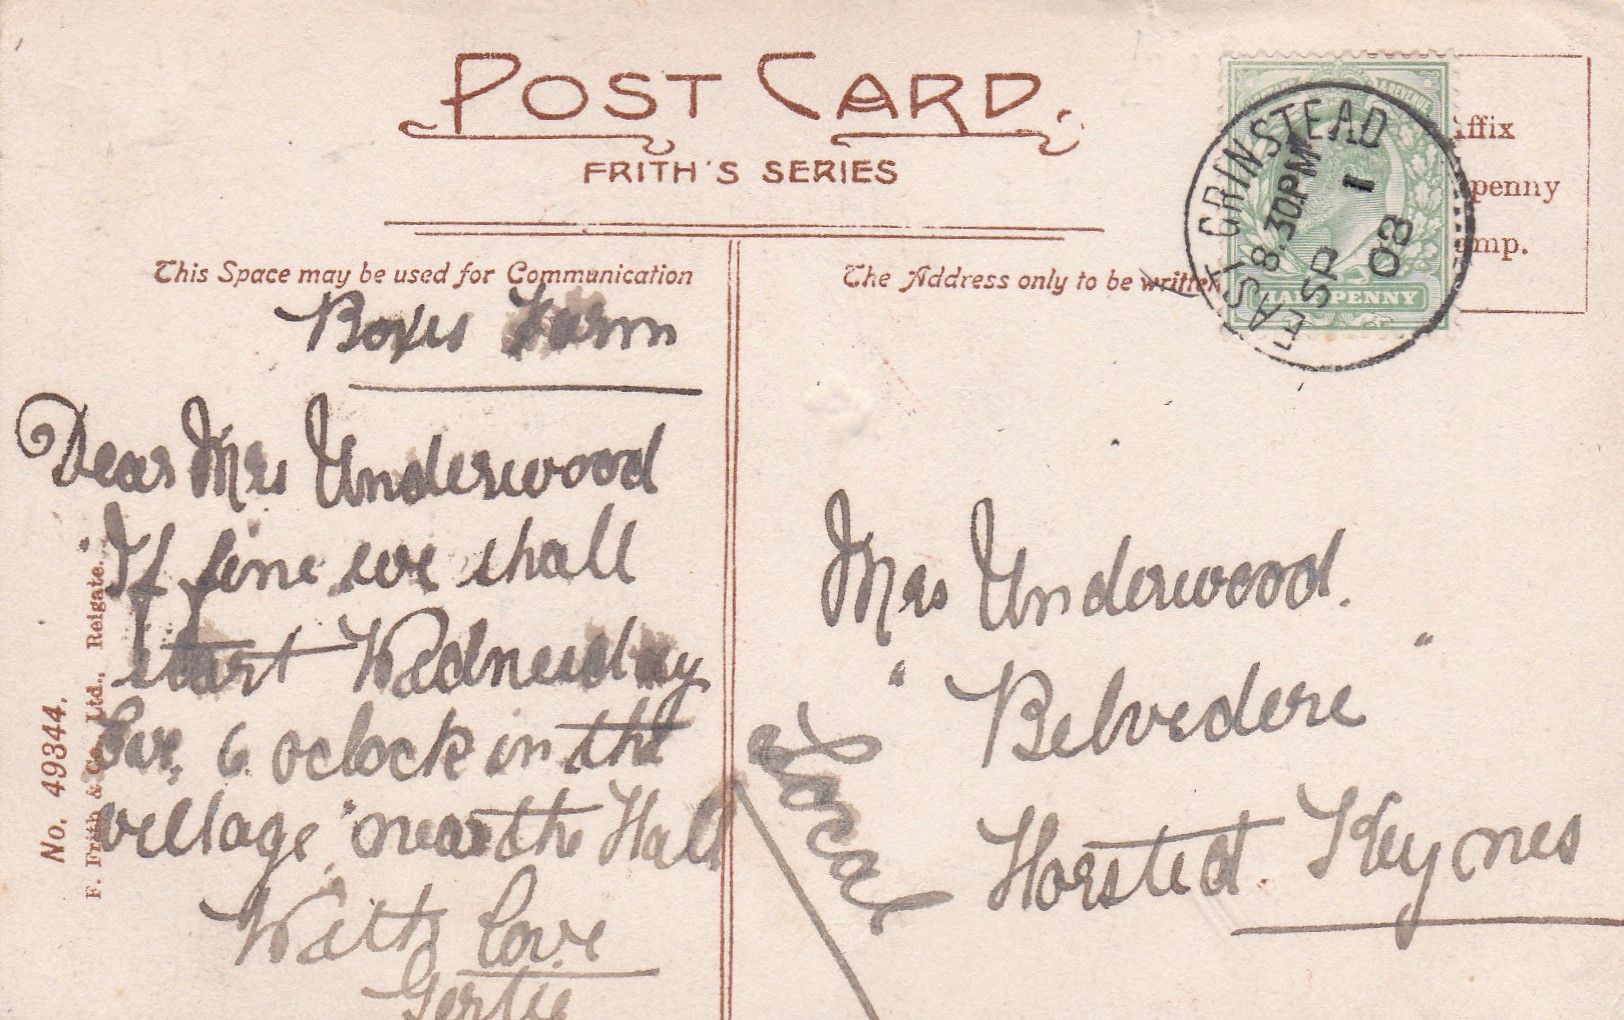 POST CARD.
FRITH'S SERIES
This Space may be used for Communication
The Address only to be written
ffix
penny
mp.
EAST GRINSTEAD
8.30PM
SP 1
08
HALFPENNY
REVENUE
Boxes Farm
Dear Mrs Underwood
If fine we shall
start Wednesday
Eve, 6 oclock in the
village "near the Hall
With love
Gertie
No. 49344.
F. Frith & Co. Ltd., Reigate.
Local
Mrs Underwood.
"Belvedere"
Horsted Keynes